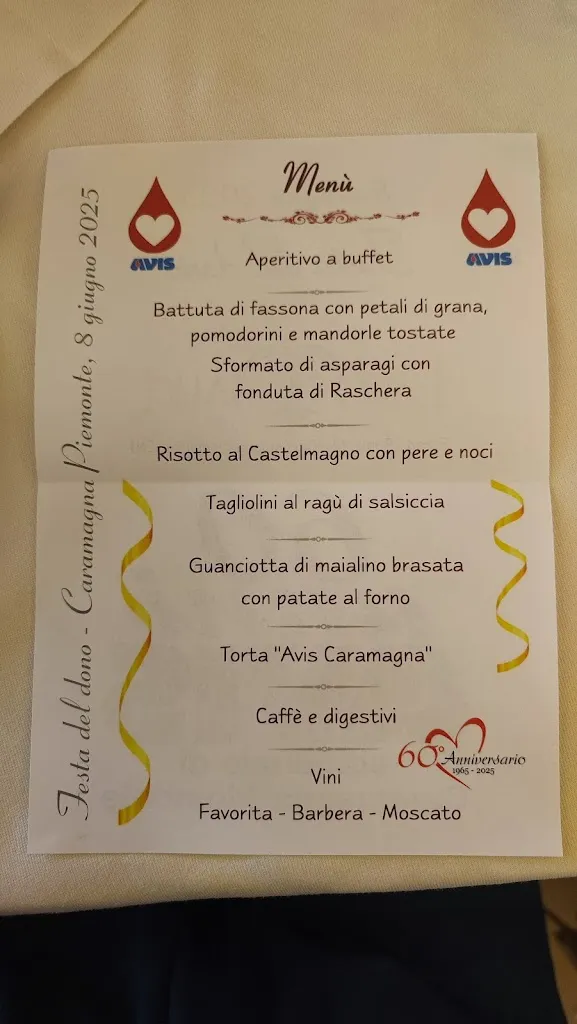 Menù
AVIS
AVIS
Aperitivo a buffet
Battuta di fassona con petali di grana,
pomodorini e mandorle tostate
Sformato di asparagi con
fonduta di Raschera
Risotto al Castelmagno con pere e noci
Tagliolini al ragù di salsiccia
Guanciotta di maialino brasata
con patate al forno
Torta "Avis Caramagna"
Caffè e digestivi
60° Anniversario
1965 - 2025
Vini
Favorita - Barbera - Moscato
Festa del dono - Caramagna Piemonte, 8 giugno 2025